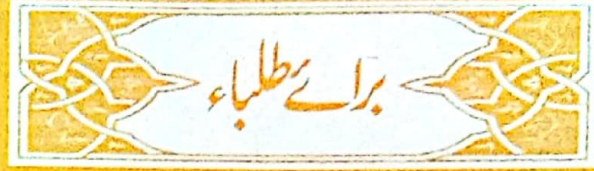 برائے طلباء